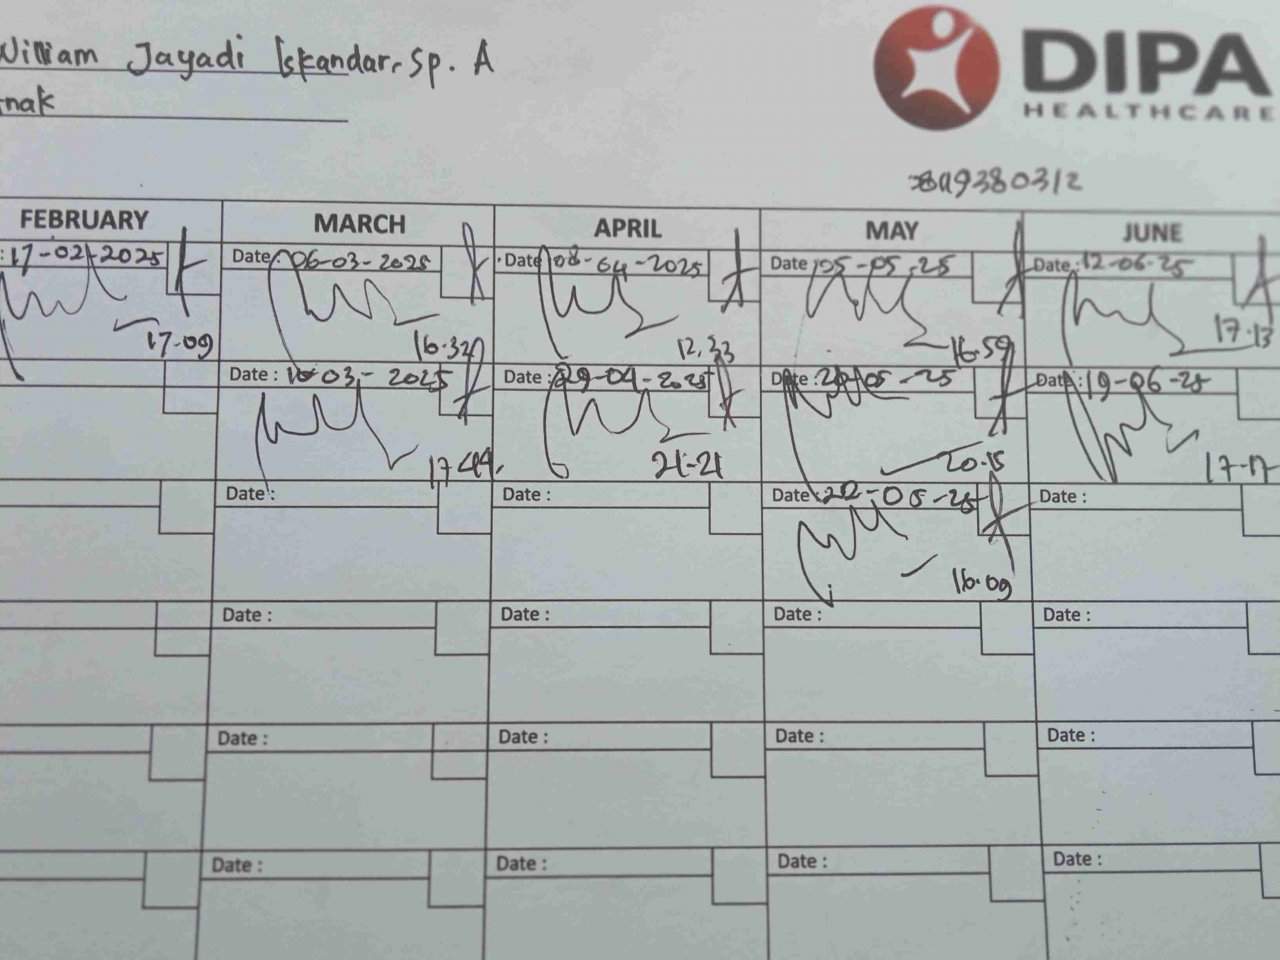 William Jayadi Iskandar, Sp. A
Anak
DIPA
HEALTHCARE
FEBRUARY MARCH APRIL MAY JUNE
: 17-02-2025 Date: 06-03-2025 Date: 08-04-2025 Date: 05-05-25 Date: 12-06-25
17.09 16.32 12.33 16.59 17.13
Date: 10-03-2025 Date: 29-04-2025 Date: -05-25 Date: 19-06-25
17.44. 21-21 20.15 17.17
Date: Date: Date: 22-05-25 Date:
16.09
Date: Date: Date: Date:
Date: Date: Date: Date:
Date: Date: Date: Date: